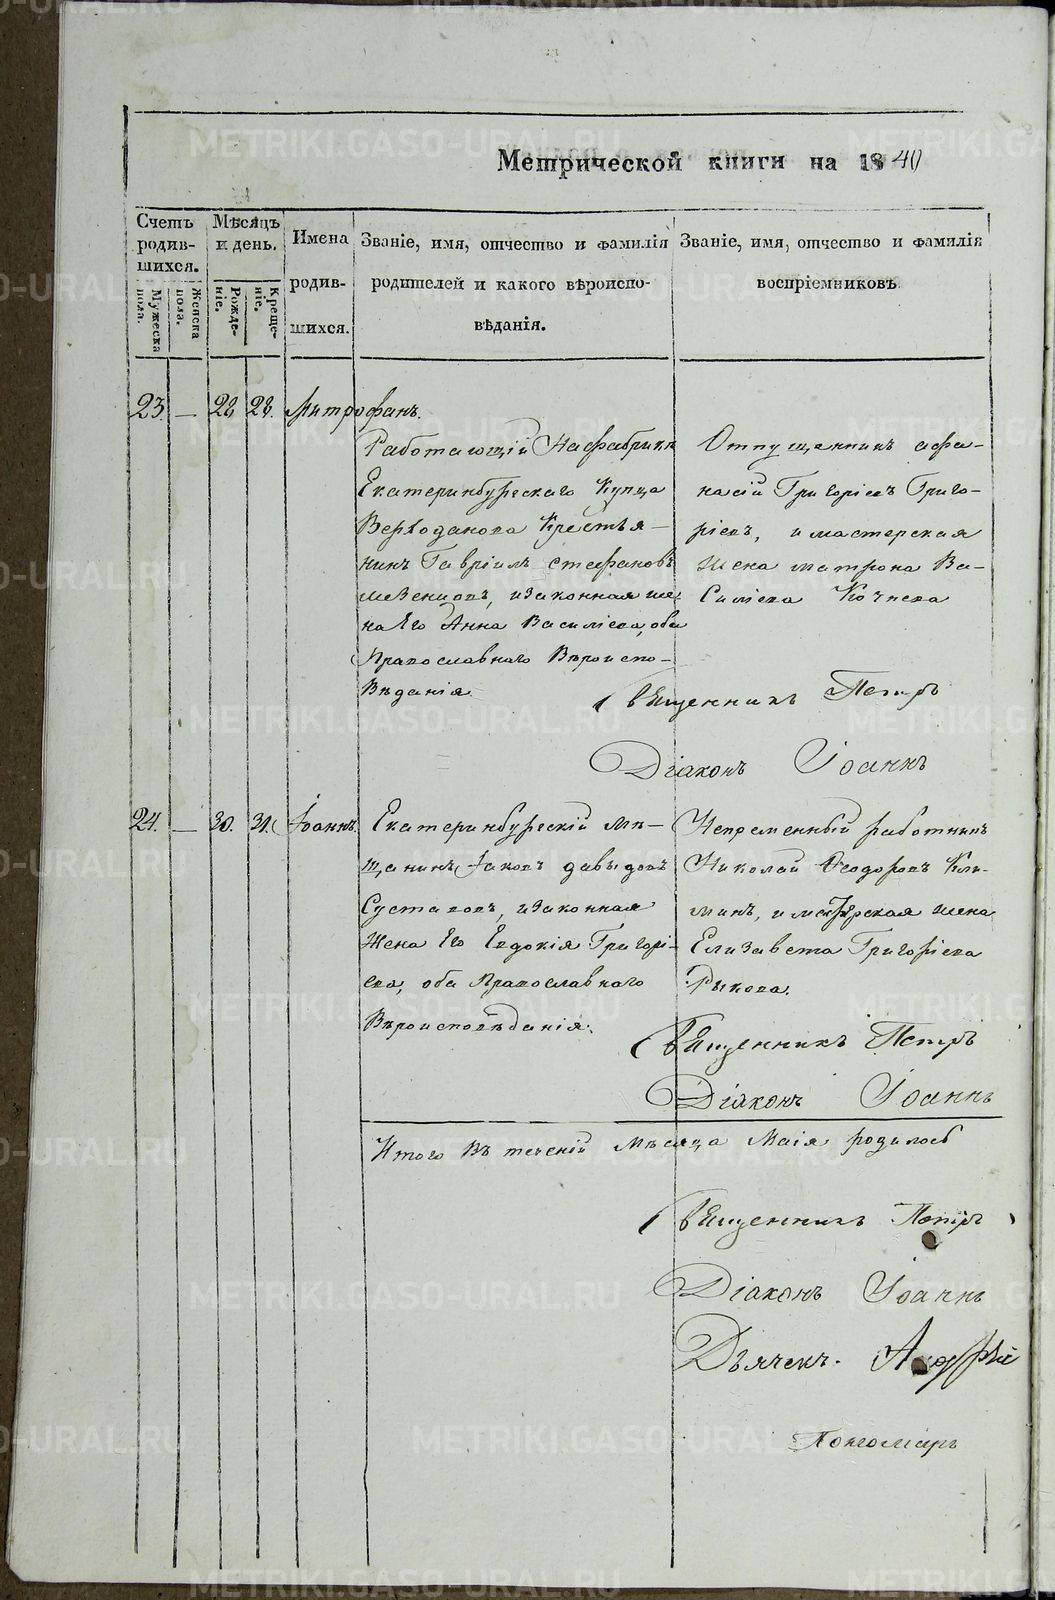 Метрической книги на 1840
Счетъ родившихся.
Мужеска пола.
Женска пола.
Мѣсяцъ и день.
Рожденіе.
Крещеніе.
Имена родившихся.
Званіе, имя, отчество и фамилія родителей и какого вѣроисповѣданія.
Званіе, имя, отчество и фамилія воспріемниковъ
23. — 28. 28. Митрофанъ.
Работающій на фабрикѣ
Екатеринбургскаго купца
Верходанова Крестья-
нинъ Гавріилъ Стефановъ
Мезенцовъ, и законная же-
на Его Анна Василіева, оба
Православнаго Вѣроиспо-
вѣданія.
Отпущенникъ Афа-
насій Григоріевъ Григо-
ріевъ, и мастерская
жена Матрона Ва-
силіева
Священникъ Петръ
Діаконъ Іоаннъ
24. — 30. 31. Іоаннъ.
Екатеринбургскій Мѣ-
щанинъ Іаковъ Давыдовъ
Сустановъ, и законная
Жена Его Евдокія Григорі-
ева, оба Православнаго
Вѣроисповѣданія.
Непременный работникъ
Николай Ѳеодоровъ Кли-
минъ, и мастерская жена
Елизавета Григоріева
Рыкова.
Священникъ Петръ
Діаконъ Іоаннъ
Итого въ теченіи Мѣсяца Маія родилось
Священникъ Петръ
Діаконъ Іоаннъ
Дьячекъ Андрей
Пономарь
METRIKI.GASO-URAL.RU